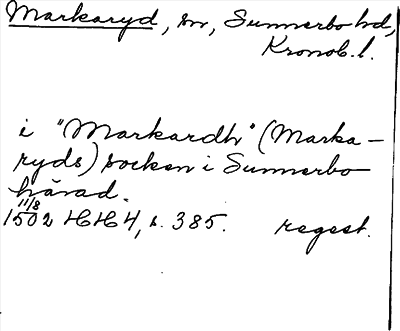 Markaryd, sn, Sunnerbo hd,
Kronob. l.
i "Markardh" (Marka-
ryds) socken i Sunnerbo
härad.
11/8
1502 HH 4, s. 385. regest.